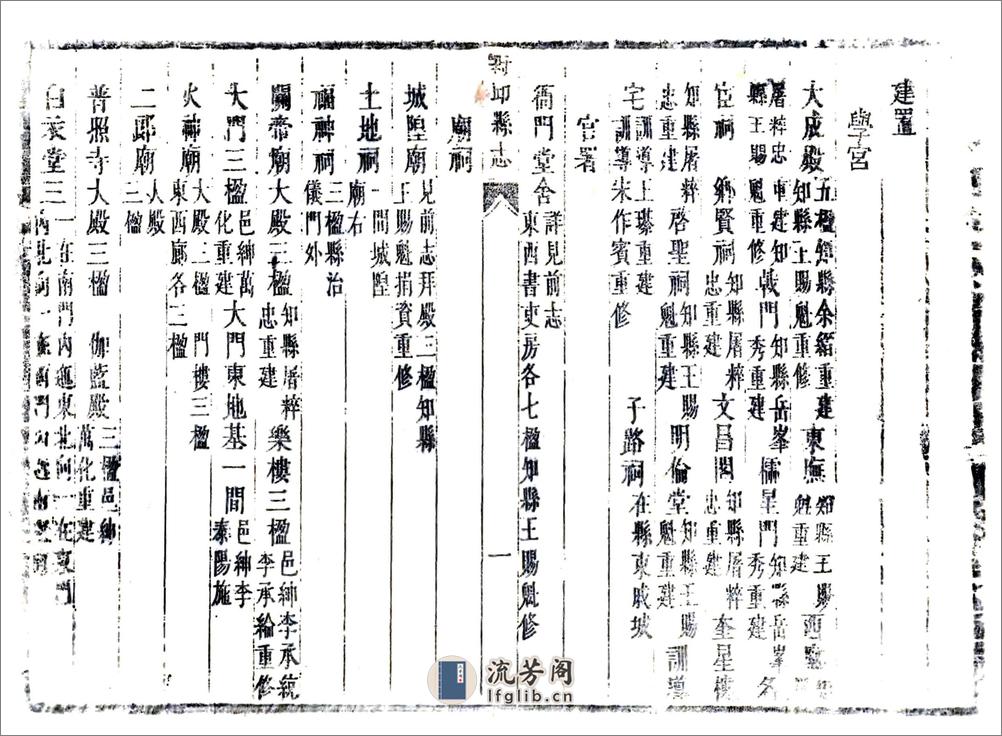 建置
學宮
大成殿五楹知縣余縉重建東廡知縣王賜魁重建西廡
知縣王賜魁重修
屠粹忠重建知縣王賜魁重修戟門知縣岳峯秀重建櫺星門知縣岳峯秀重建名
宦祠知縣屠粹忠重建鄉賢祠知縣屠粹忠重建文昌閣知縣屠粹忠重建奎星樓
啓聖祠知縣王賜魁重建明倫堂知縣王賜魁重建訓導
宅訓導王璂重建訓導朱作賓重修子路祠在縣東戚城
官署
衙門堂舍詳見前志東西書吏房各七楹知縣王賜魁修
封邱縣志
一
廟祠
城隍廟見前志拜殿三楹知縣王賜魁捐資重修
土地祠一間城隍廟右
福神祠三楹縣治儀門外
關帝廟大殿三楹知縣屠粹忠重建樂樓三楹邑紳李承統李承綸重修
大門三楹邑紳萬化重建大門東地基一間邑紳李春陽施
火神廟大殿三楹東西廊各三楹門樓三楹
二郎廟大殿三楹
普照寺大殿三楹伽藍殿三楹邑紳萬化重建
白衣堂三一在南門內迤東北向一在